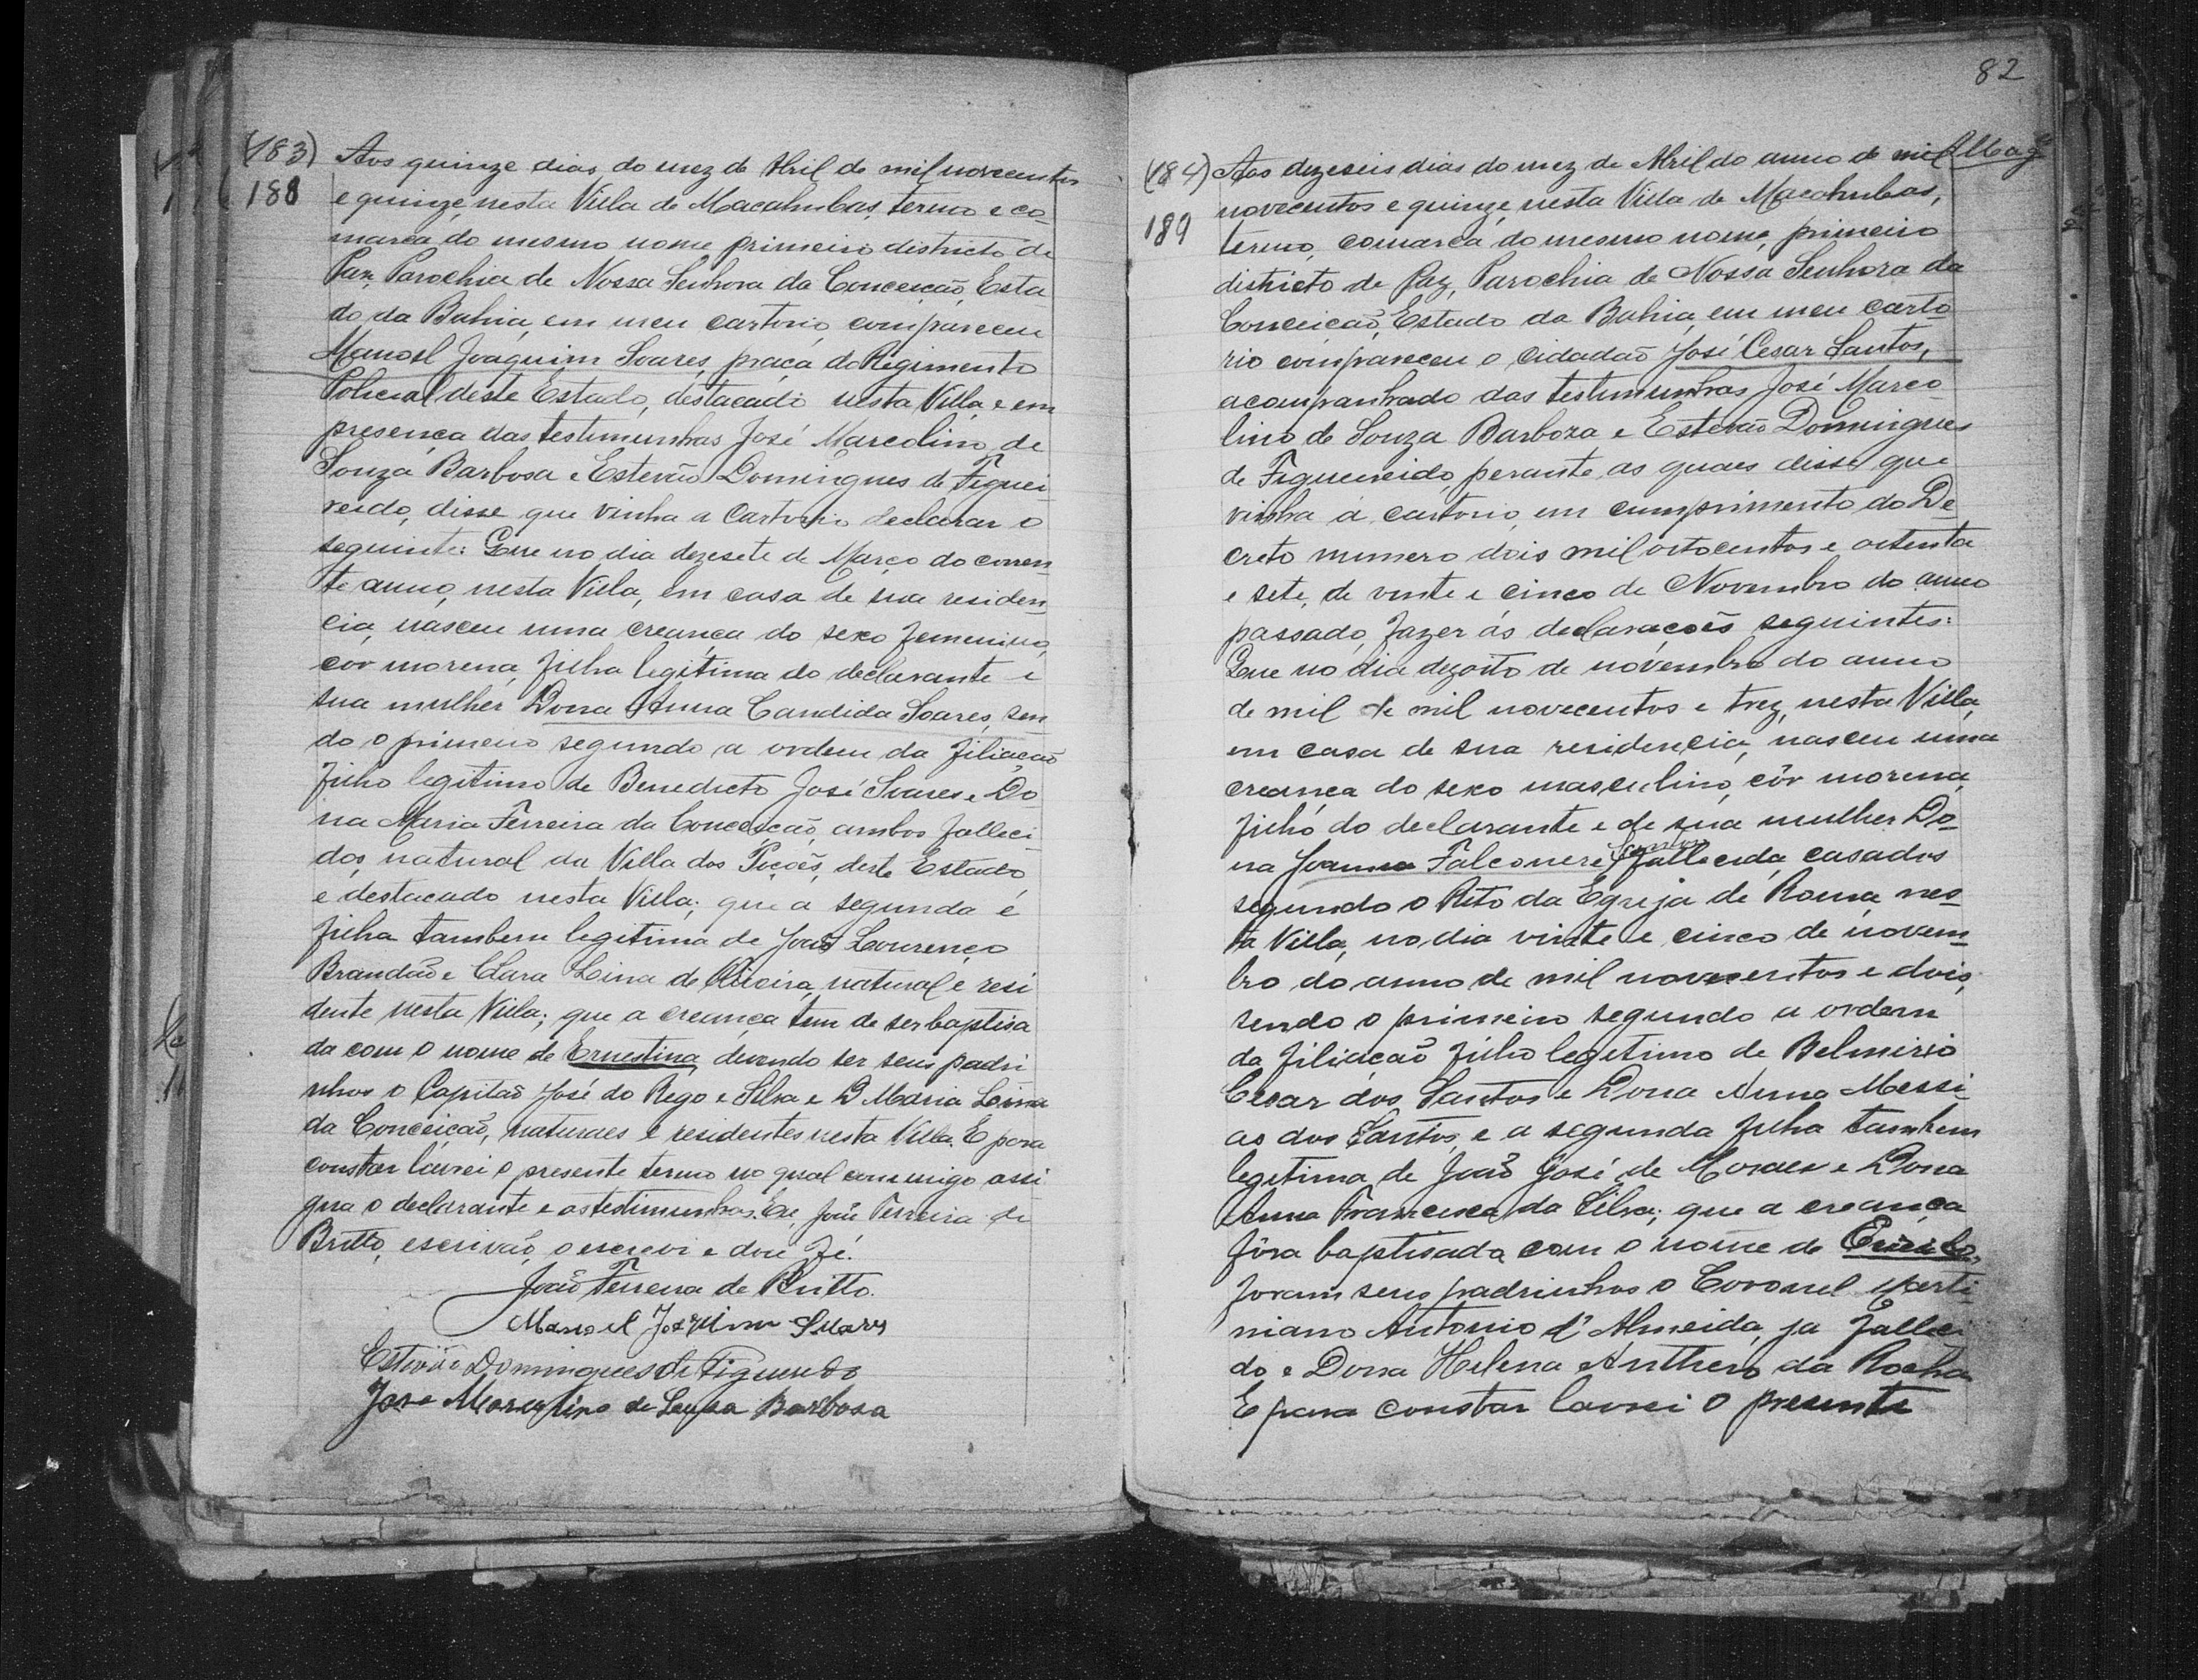 (183)
188
Aos quinze dias do mez de Abril de mil novecentos
e quinze, nesta Villa de Macahubas, termo e co
marca do mesmo nome primeiro districto de
Paz, Parochia de Nossa Senhora da Conceição, Esta
do da Bahia, em meu cartorio, compareceu
Manoel Joaquim Soares, praça do Regimento
Policial deste Estado, destacado nesta Villa e em
presença das testimunhas José Marcolino de
Souza Barbosa e Estevão Domingues de Figuei
reido, disse que vinha a Cartorio declarar o
seguinte: Que no dia dezesete de Março do corren
te anno, nesta Villa, em casa de sua residen
cia, nasceu uma creança do sexo femenino,
côr morena, filha legitima do declarante e
sua mulher Dona Anna Candida Soares, sen
do o primeiro segundo a ordem da filiação
filho legitimo de Benedicto José Soares e Do
na Maria Ferreira da Conceição, ambos falleci
dos, natural da Villa dos Poções, deste Estado
e destacado nesta Villa; que a segunda é
filha tambem legitima de João Lourenço
Brandão e Clara Lina de Oliveira, natural e resi
dente nesta Villa; que a creança tem de ser baptisa
da com o nome de Ernestina, devendo ser seus padri
nhos o Capitão José do Rego e Silva e D Maria Lima
da Conceição, naturaes e residentes nesta Villa. E para
constar lavrei o presente termo no qual commigo assi
gna o declarante e as testimunhas. Eu, João Ferreira de
Britto, escrivão, o escrevi e dou fé.
João Ferreira de Britto.
Manoel Joaquim Suares
Estevão Domingues de Figueredo
Jose Marculino de Souza Barbosa
82
(184)
189
Aos dezeseis dias do mez de Abril do anno de mil
novecentos e quinze, nesta Villa de Macahubas,
termo, comarca do mesmo nome, primeiro
districto de Paz, Parochia de Nossa Senhora da
Conceição, Estado da Bahia, em meu carto
rio compareceu o cidadão José Cesar Santos,
acompanhado das testimunhas José Marco
lino de Souza Barboza e Estevão Domingues
de Figueireido, perante as quaes disse que
vinha a cartorio, em cumprimento do De
creto numero dois mil oitocentos e oitenta
e sete, de vinte e cinco de Novembro do anno
passado, fazer ás declarações seguintes:
Que no dia dezoito de novembro do anno
de mil de mil novecentos e trez, nesta Villa,
em casa de sua residencia, nasceu uma
creança do sexo masculino, côr morena,
filho do declarante e de sua mulher Do
na Joanna Falconere Santos fallecida, casados
segundo o Rito da Egreja de Roma, nes
ta Villa, no dia vinte e cinco de novem
bro do anno de mil novecentos e dois,
sendo o primeiro segundo a ordem
da filiação filho legitimo de Belmirio
Cesar dos Santos e Dona Anna Messi
as dos Santos, e a segunda filha tambem
legitima de João José de Moraes e Dona
Anna Francisca da Silva; que a creança
fôra baptisada com o nome de
foram seus padrinhos o Coronel Marti
niano Antonio d'Almeida, ja falleci
do, e Dona Helena Anthero da Rocha
E para constar lavrei o presente